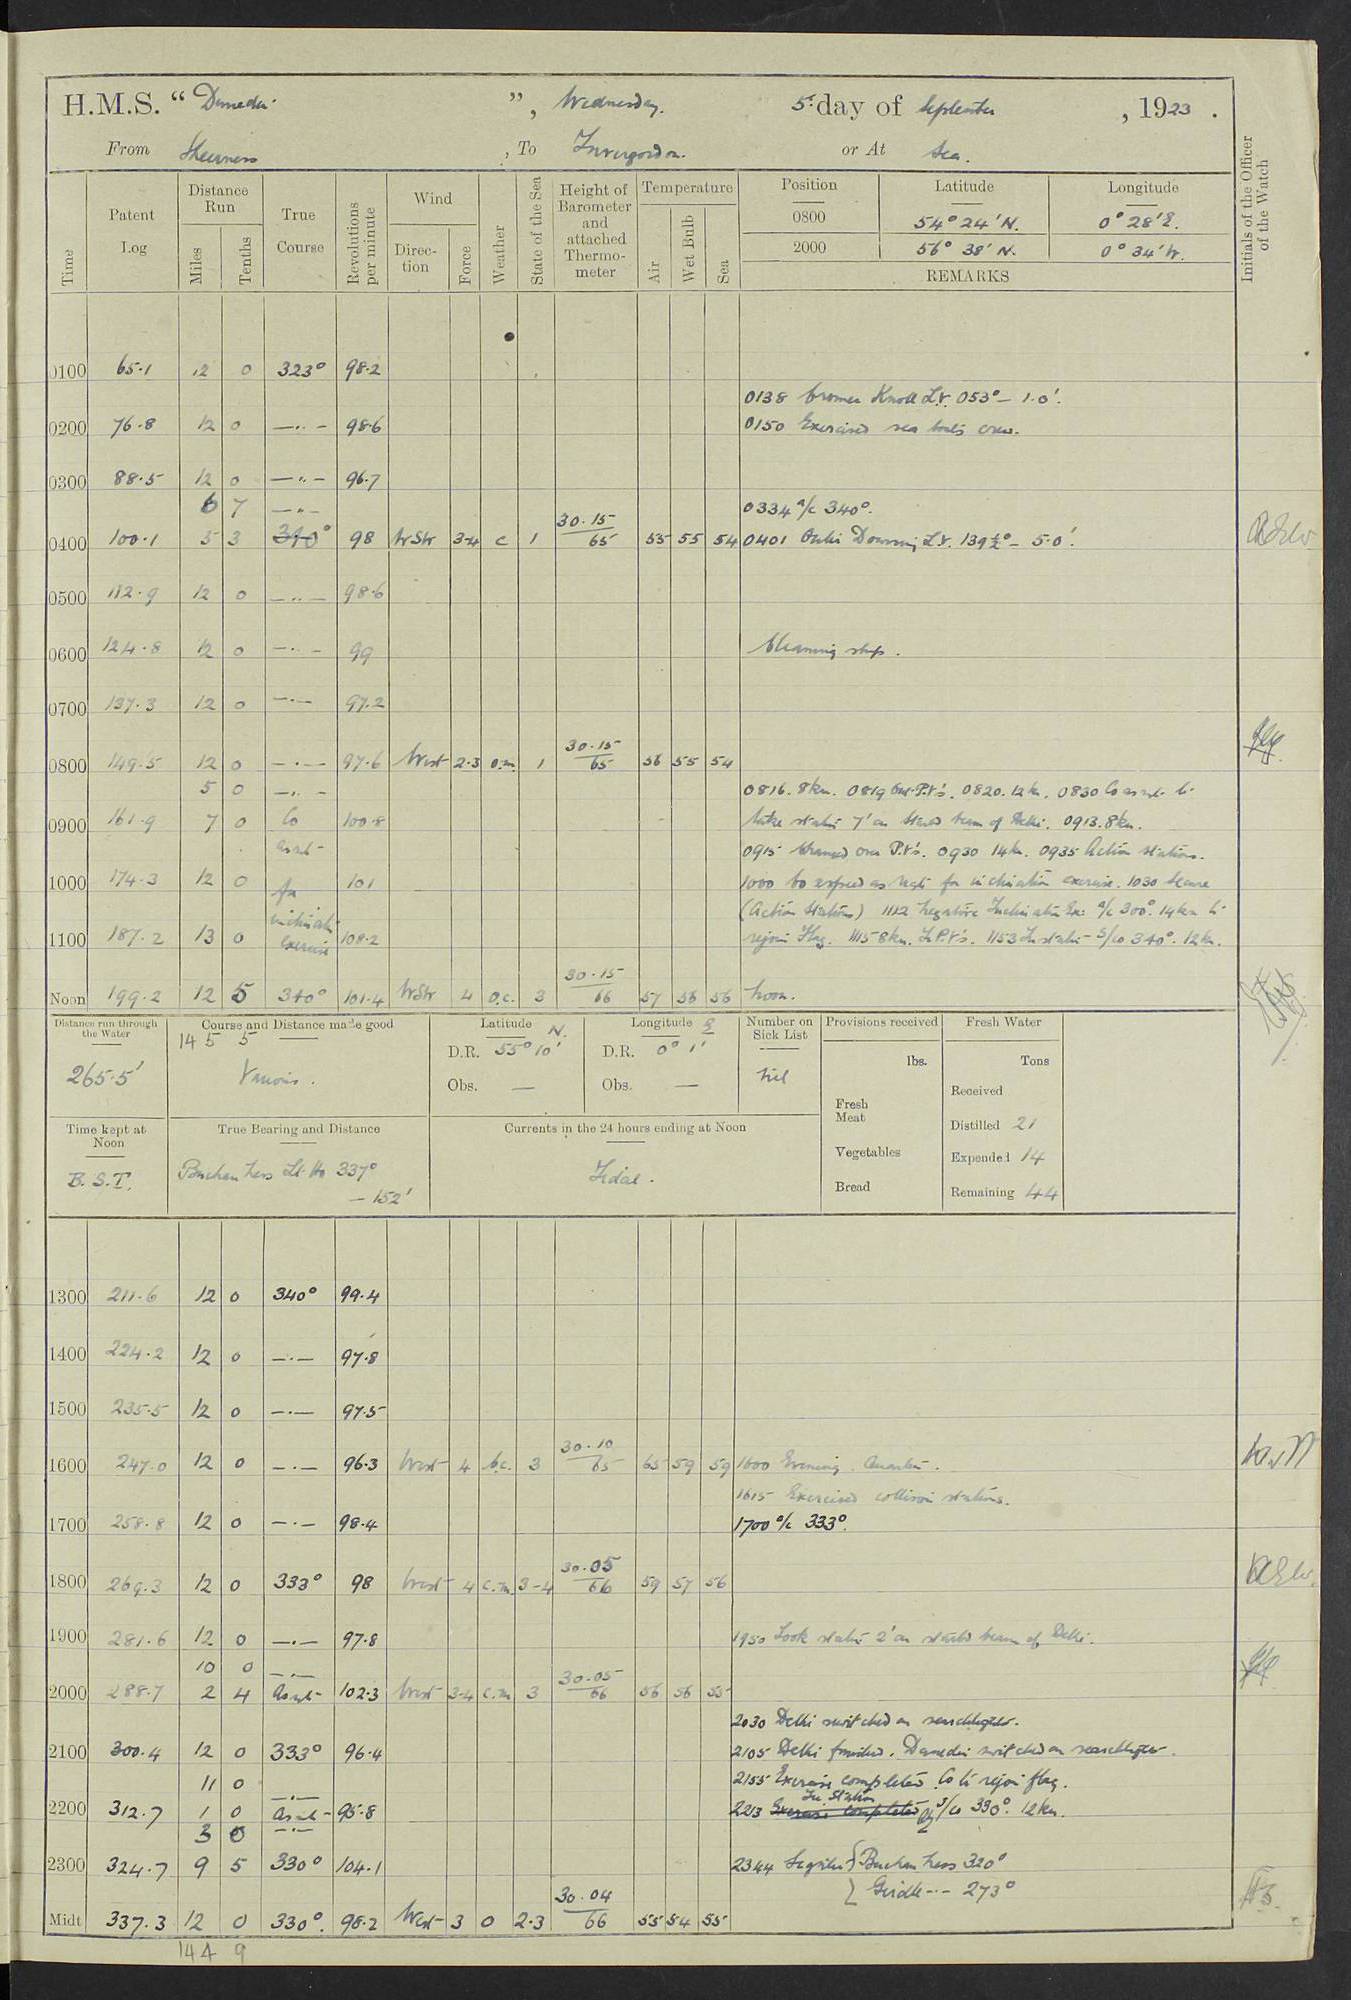 H.M.S. “ Dunedin ”, Wednesday. 5th day of September , 1923 .
From Sheerness , To Invergordon. or At Sea.
Time Patent Log Distance Run Miles Tenths True Course Revolutions per minute Wind Direction Force Weather State of the Sea Height of Barometer and attached Thermometer Temperature Air Wet Bulb Sea Position Latitude Longitude Initials of the Officer of the Watch
0800 54° 24' N. 0° 28' E.
2000 56° 38' N. 0° 34' W.
REMARKS
0100 65.1 12 0 323° 98.2
0138 Cromer Knoll L.V. 053° – 1.0'.
0200 76.8 12 0 –"– 98.6 0150 Exercised sea boats crew.
0300 88.5 12 0 –"– 96.7
6 7 –"– 0334 a/c 340°.
0400 100.1 5 3 340° 98 WSW 3-4 c 1 30.15/65 55 55 54 0401 Outer Dowsing L.V. 139½° – 5.0'.
0500 112.9 12 0 –"– 98.6
0600 124.8 12 0 –"– 99 Cleaning ship.
0700 137.3 12 0 –"– 97.2
0800 149.5 12 0 –"– 97.6 West 2.3 o.m. 1 30.15/65 56 55 54
5 0 –"– 0816. 8kn. 0819 Out P.V's. 0820. 12 kn. 0830 Co as req. to
0900 161.9 7 0 Co 100.8 take station 7' on Starbd beam of Delhi. 0913. 8kn.
as req– 0915 Changed over P.V's. 0930 14kn. 0935 Action stations.
1000 174.3 12 0 for 101 1000 Co & speed as req. for inclination exercise. 1030 Secure
inclinatn (Action Stations) 1112 Negative Inclination Ex: a/c 300°. 14kn to
1100 187.2 13 0 exercise 108.2 rejoin Flag. 1115 8kn. In P.V's. 1153 In station – S/co 340°. 12kn.
Noon 199.2 12 5 340° 101.4 WSW 4 o.c. 3 30.15/66 57 56 56 Noon.
Distance run through the Water 265.5'
Course and Distance made good 145 5 Various.
Latitude N. D.R. 55° 10' Obs. —
Longitude E D.R. 0° 1' Obs. —
Number on Sick List Nil
Provisions received lbs. Fresh Meat Vegetables Bread
Fresh Water Tons Received Distilled 21 Expended 14 Remaining 44
Time kept at Noon B.S.T.
True Bearing and Distance Buchan Ness Lt. Ho 337° – 152'
Currents in the 24 hours ending at Noon Tidal.
1300 211.6 12 0 340° 99.4
1400 224.2 12 0 –"– 97.8
1500 235.5 12 0 –"– 97.5
1600 247.0 12 0 –"– 96.3 West 4 b.c. 3 30.10/65 65 59 59 1600 Evening Quarters.
1615 Exercised collision stations.
1700 258.8 12 0 –"– 98.4 1700 a/c 333°.
1800 269.3 12 0 333° 98 West 4 c.m. 3-4 30.05/66 59 57 56
1900 281.6 12 0 –"– 97.8 1950 Took station 2' on starbd beam of Delhi.
10 0 –"–
2000 288.7 2 4 As req– 102.3 West 3-4 c.m. 3 30.05/66 56 56 55
2030 Delhi switched on searchlights.
2100 300.4 12 0 333° 96.4 2105 Delhi finished. Dunedin switched on searchlights.
11 0 –"– 2155 Exercise completed Co to rejoin flag.
2200 312.7 1 0 As req– 95.8 2213 Exercise completed In station S/co 330°. 12kn.
3 0 –"–
2300 324.7 9 5 330° 104.1 2344 Sighted Buchan Ness 320°
Girdle –"– 273°
Midt 337.3 12 0 330°. 98.2 West 3 o 2.3 30.04/66 55 54 55
144 9